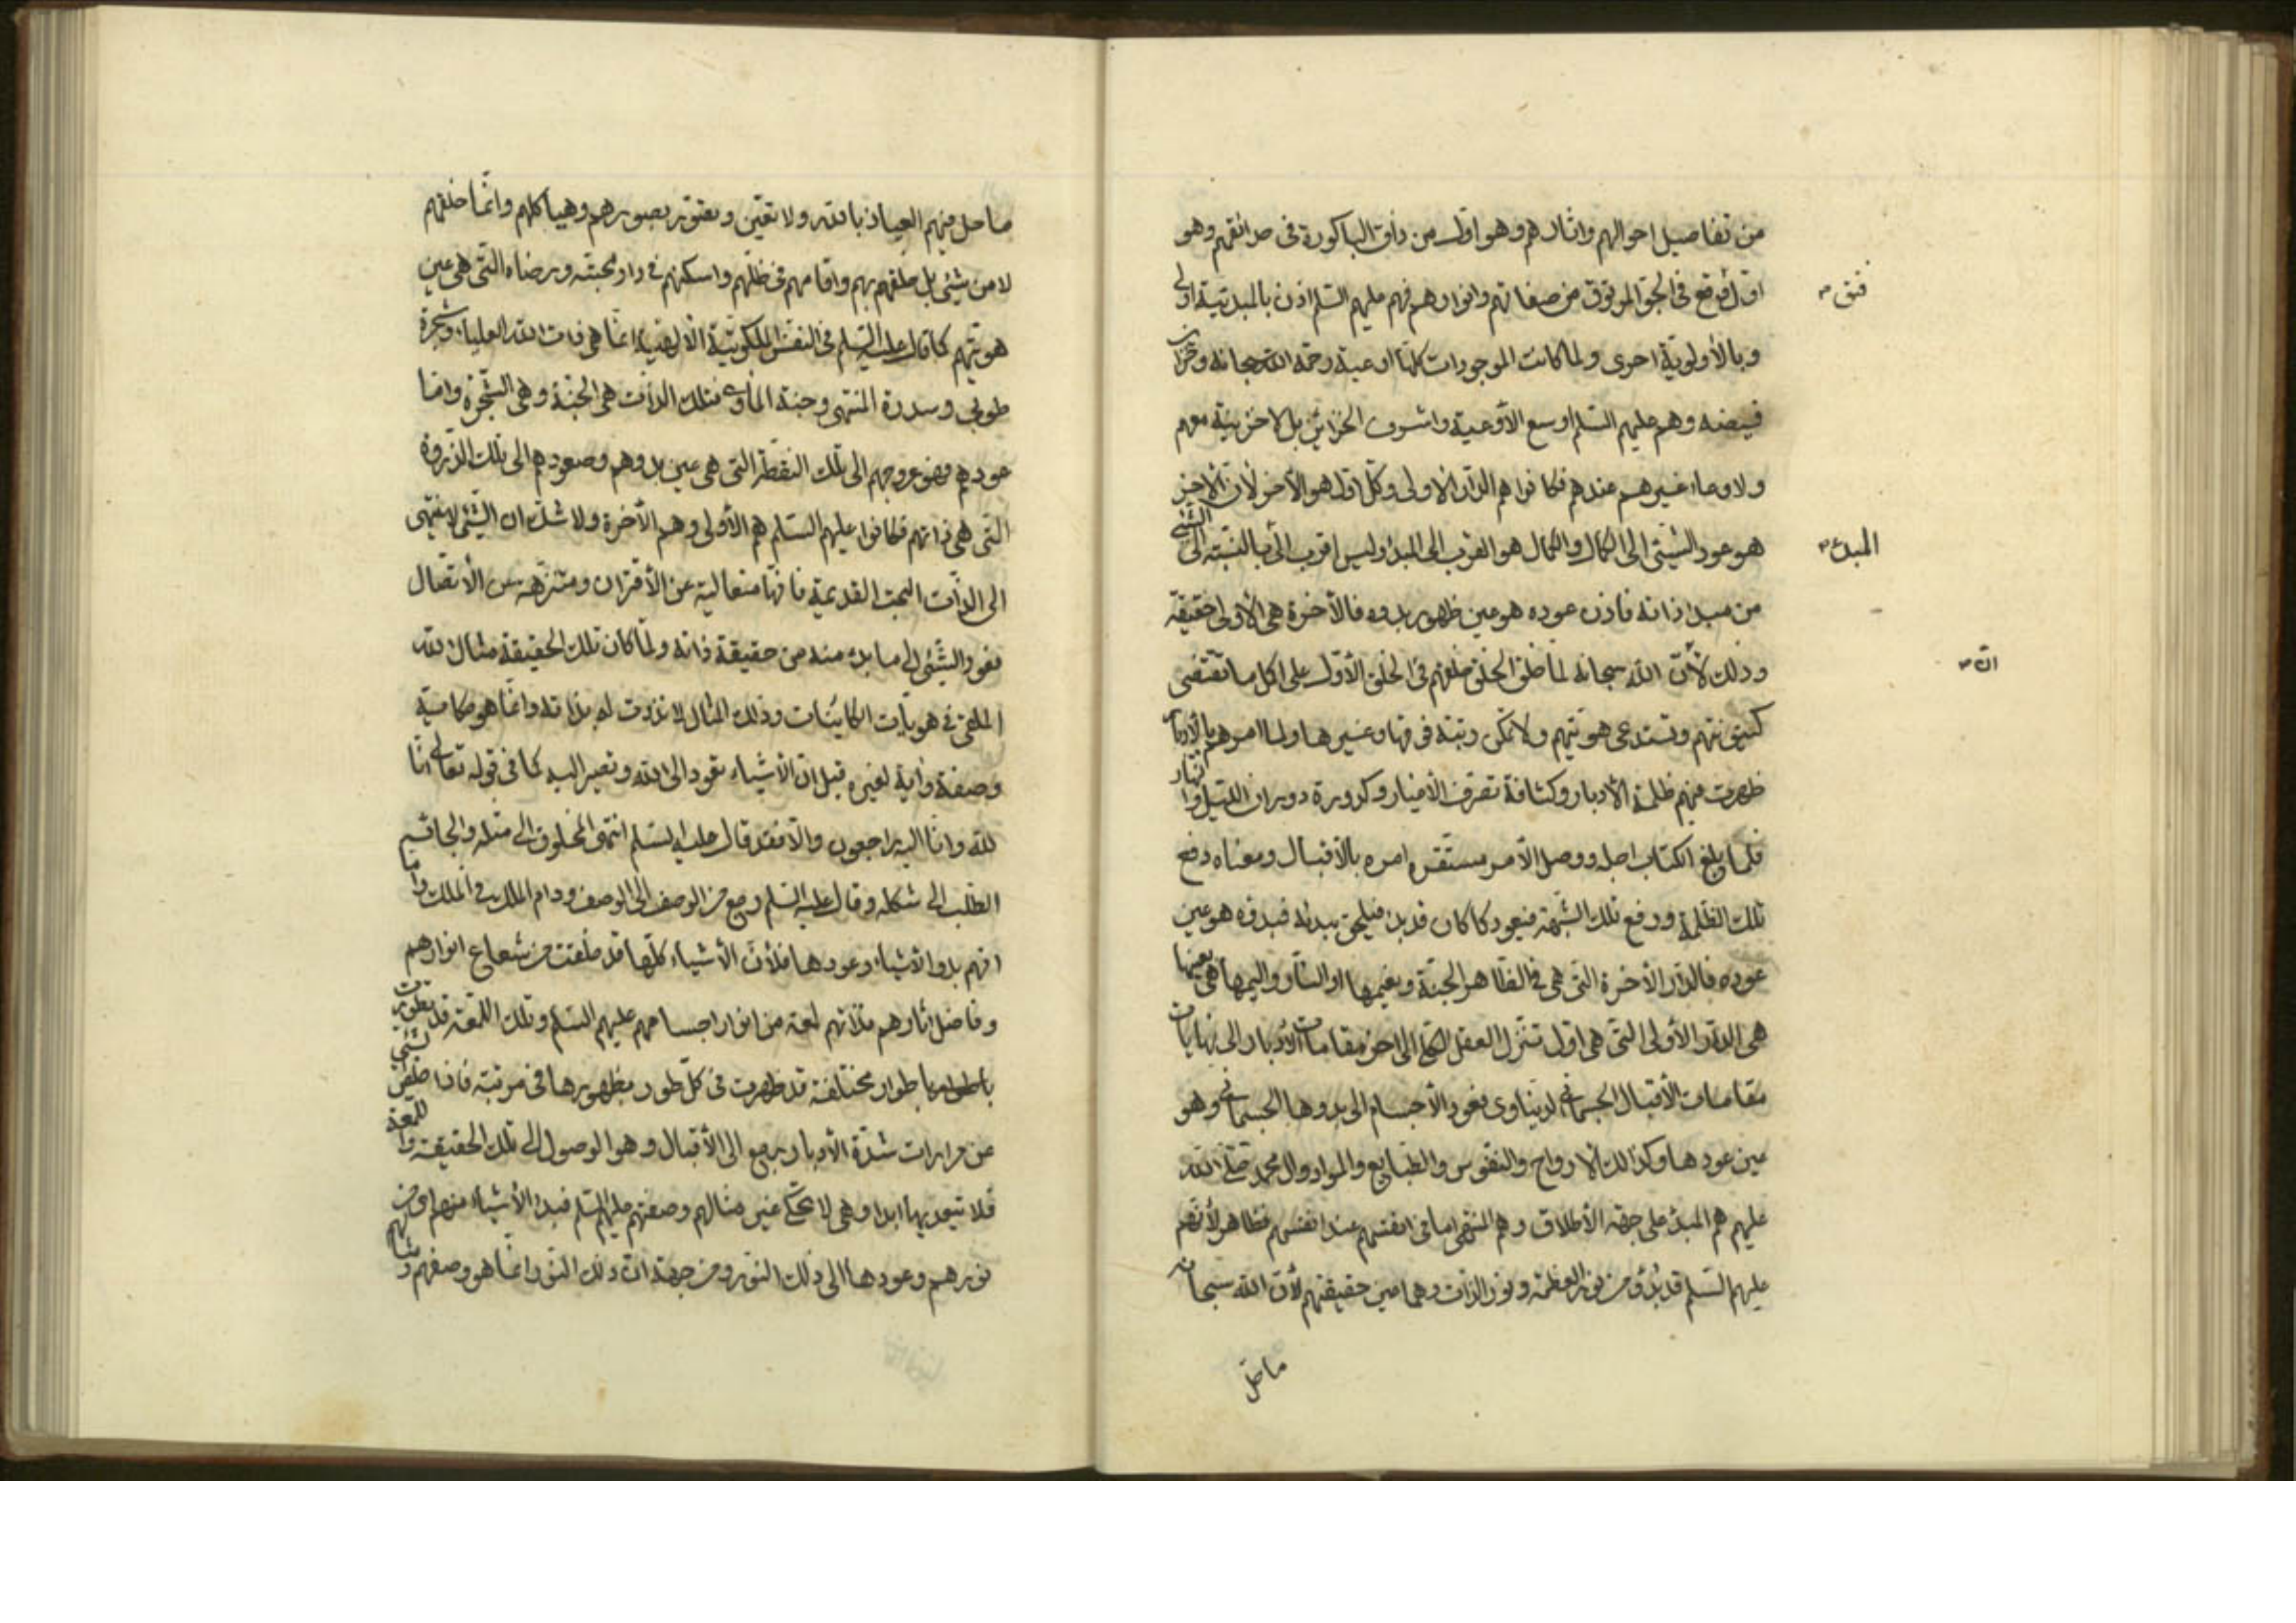 من تفاصيل احوالهم واثارهم وهو اول من ذاق الباكورة فى حدائقهم وهو
اول فى الجو من صفاتهم وانوارهم فهم عليهم السلم اذن بالمبدئية اولى
فتق
وبالأولوية احرى ولما كانت الموجودات كلها اوعية رحمة الله سبحانه وخزاين
فيضه وهم عليهم السلم اوسع الأوعية واشرف الخزائن بل لا خزينة معهم
ولا وعاء غيرهم عندهم فكانوا هم الدار الاولى وكل اول هو الأخر لأن الأخر
هو عود الشيئ الى الكمال والكمال هو القرب الى المبدء وليس اقرب الى الشيئ بالنسبة الى
المبدء
من مبدء ذاته فاذن عوده هو عين ظهور بدوه فالأخرة هى الأولى حقيقة
وذلك لأن الله سبحانه لما خلق الخلق خلقهم فى الخلق الأول على اكمل ما تقتضى
ان
كينونتهم وتستدعى هويتهم ولا تمكن رتبة فوقها وغيرها ولما امرهم بالأدبار
ظهرت فيهم ظلمة الأدبار وكثافة تفرق الأغيار وكدورة دوران الليل والنهار
فلما بلغ الكتاب اجله ووصل الأمر مستقره امره بالأقبال ومعناه دفع
تلك الظلمة ورفع تلك الشبهة فيعود كما كان قد بدء فيلحق ببدئه فبدوه هو عين
عوده فالدار الأخرة التى هى فى الظاهر الجنة ونعيمها او النار واليمها هى بعينها
هى الدار الأولى التى هى اول تنزل العقل الكلى الى اخر مقامات الأدبار الى نهايات
مقامات الأقبال الجسمانى الدنياوى فعود الأجسام الى بدوها الجسمانى وهو
عين عودها وكذلك الأرواح والنفوس والطبايع والمواد وال محمد صلى الله
عليهم هم المبدء على جهة الأطلاق وهم المنتهى اما فى انفسهم عند انفسهم فظاهر لأنهم
عليهم السلم قد بدؤ من نور العظمة ونور الذات وهما عين حقيقتهم لأن الله سبحانه
ما حل
ما حل فيهم العياذ بالله ولا تعين وتصور بصورهم وهياكلهم وانما خلقهم
لا من شيئى بل خلقهم بهم واقامهم فى ظلهم واسكنهم فى دار محبته ورضاه التى هى عين
هويتهم كما قال عليه السلم فى النفس الملكوتية الألهية انما هى ذات الله العليا وشجرة
طوبى وسدرة المنتهى وجنة المأوى فتلك الذات هى الجنة وهى الشجرة واما
عودهم فهو عروجهم الى تلك النقطة التى هى عين بدوهم وصعودهم الى تلك الذروة
التى هى ذاتهم فكانوا عليهم السلم هم الأولى وهم الأخرة ولا شك ان الشيئ لا ينتهى
الى الذات البحت القديمة فانها متعالية عن الأقتران ومتنزهة عن الأتصال
فعود الشيئى الى ما بدء منه من حقيقة ذاته ولما كان تلك الحقيقة مثال الله
الملقى فى هويات الكاينات وذلك المثال لا تذوت له بذاته وانما هو حكاية
وصفة واية لغيره قيل ان الأشياء تعود الى الله وتصير اليه كما فى قوله تعالى انا
لله وانا اليه راجعون والا فقد قال عليه السلم انتهى المخلوق الى مثله والجاه
الطلب الى شكله وقال عليه السلم رجع من الوصف الى الوصف ودام الملك فى الملك واما
انهم بدو الأشياء وعودها فلأن الأشياء كلها قد خلقت من شعاع انوارهم
وفاضل اثارهم لمعة من انوار اجسامهم عليهم السلم وتلك اللمعة قد تطورت
باطوار مختلفة قد ظهرت فى كل طور بظهورها فى مرتبة فاذا
عن شدة الأدبار يرجع الى الأقبال وهو الوصول الى تلك الحقيقة واللمعة
فلا تتعديها ابدا وهى لا تحكى غير مثالهم وصفتهم عليهم السلم فبدء الأشياء منهم اى من
نورهم وعودها الى ذلك النور ومن جهة ان ذلك النور انما هو وصفهم ومثالهم